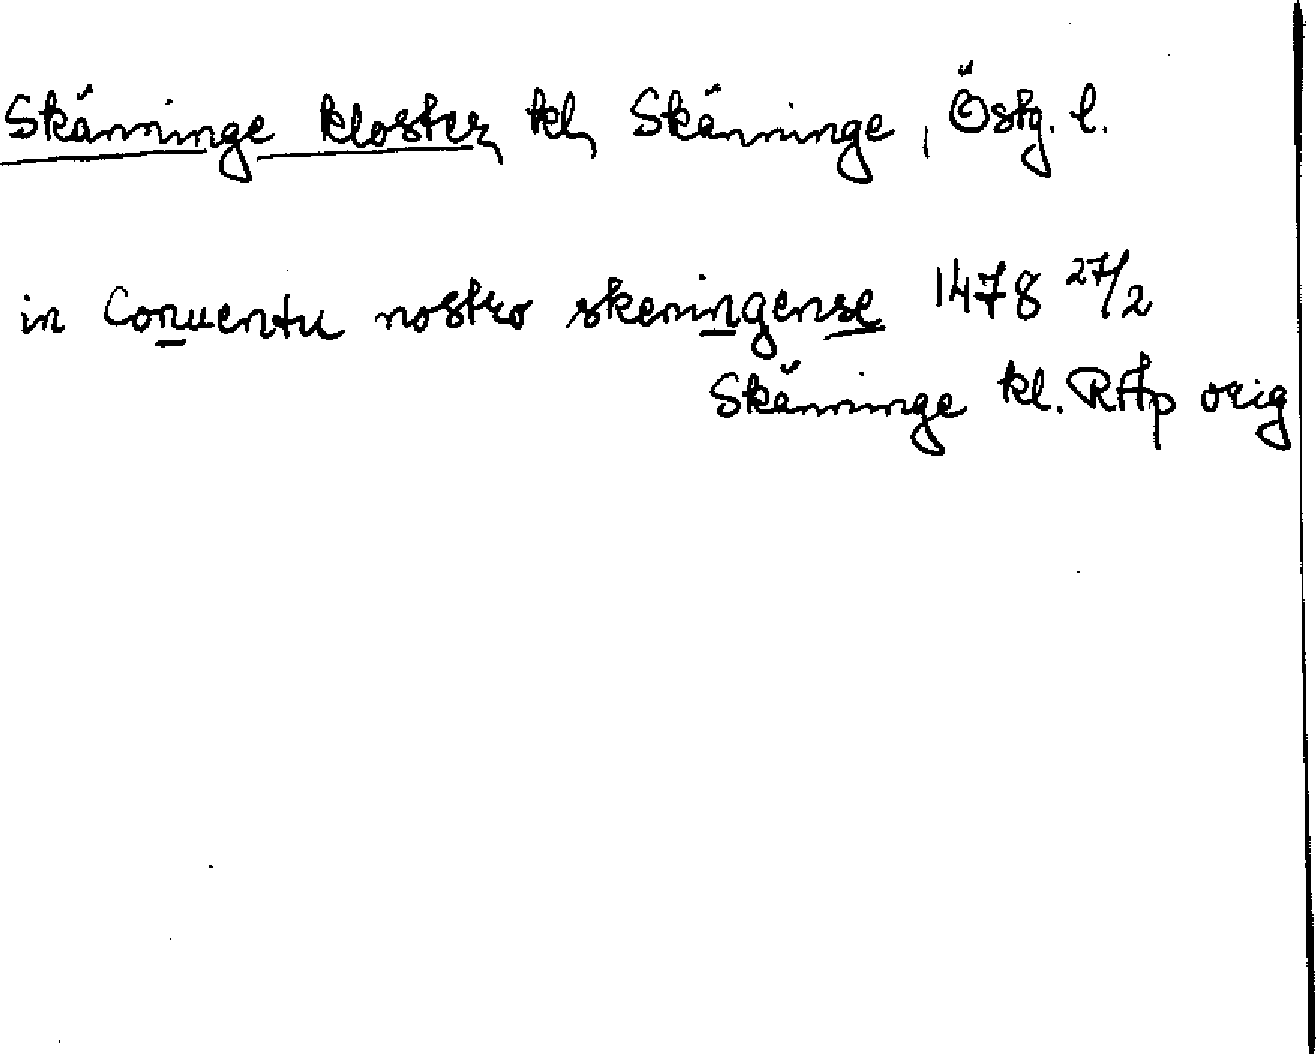 Skänninge kloster, kl, Skänninge, Östg. l.
in Conuentu nostro skeningense 1478 27/2
Skänninge kl. RAp orig